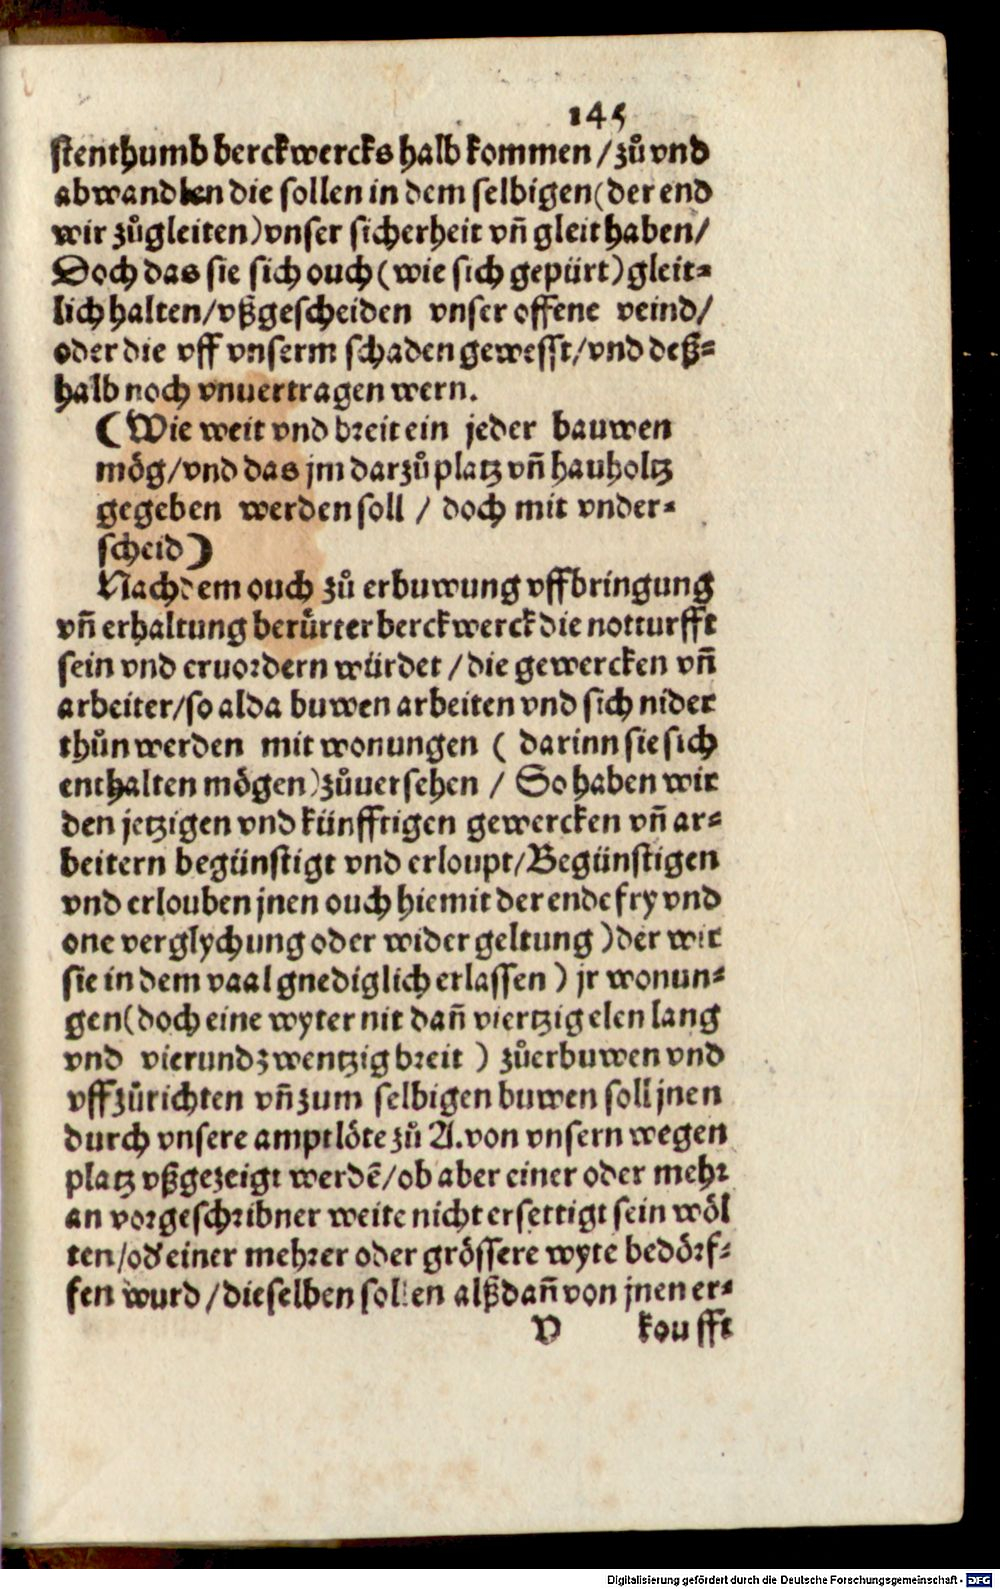 145
stenthumb berckwercks halb kommen / zů vnd
abwandlen die sollen in dem selbigen (der end
wir zůgleiten) vnser sicherheit vñ gleit haben /
Doch das sie sich ouch (wie sich gepürt) gleit⸗
lich halten / vßgescheiden vnser offene veind /
oder die vff vnserm schaden gewesst / vnd deß⸗
halb noch vnuertragen wern.
(Wie weit vnd breit ein jeder bauwen
mög / vnd das jm darzů platz vñ hauholtz
gegeben werden soll / doch mit vnder⸗
scheid)
Nachdem ouch zů erbuwung vffbringung
vñ erhaltung berůrter berckwerck die notturfft
sein vnd eruordern würdet / die gewercken vñ
arbeiter / so alda buwen arbeiten vnd sich nider
thůn werden mit wonungen ( darinn sie sich
enthalten mögen) zůuersehen / So haben wir
den jetzigen vnd künfftigen gewercken vñ ar⸗
beitern begünstigt vnd erloupt / Begünstigen
vnd erlouben jnen ouch hiemit der ende fry vnd
one verglychung oder wider geltung ) der wir
sie in dem vaal gnediglich erlassen ) jr wonun⸗
gen (doch eine wyter nit dañ viertzig elen lang
vnd vierundzwentzig breit ) zůerbuwen vnd
vffzůrichten vñ zum selbigen buwen soll jnen
durch vnsere amptlöte zů A. von vnsern wegen
platz vßgezeigt werdē / ob aber einer oder mehr
an vorgeschribner weite nicht ersettigt sein wöl
ten / od' einer mehrer oder grössere wyte bedörf⸗
fen wurd / dieselben sollen alßdañ von jnen er⸗
V koufft
Digitalisierung gefördert durch die Deutsche Forschungsgemeinschaft - DFG